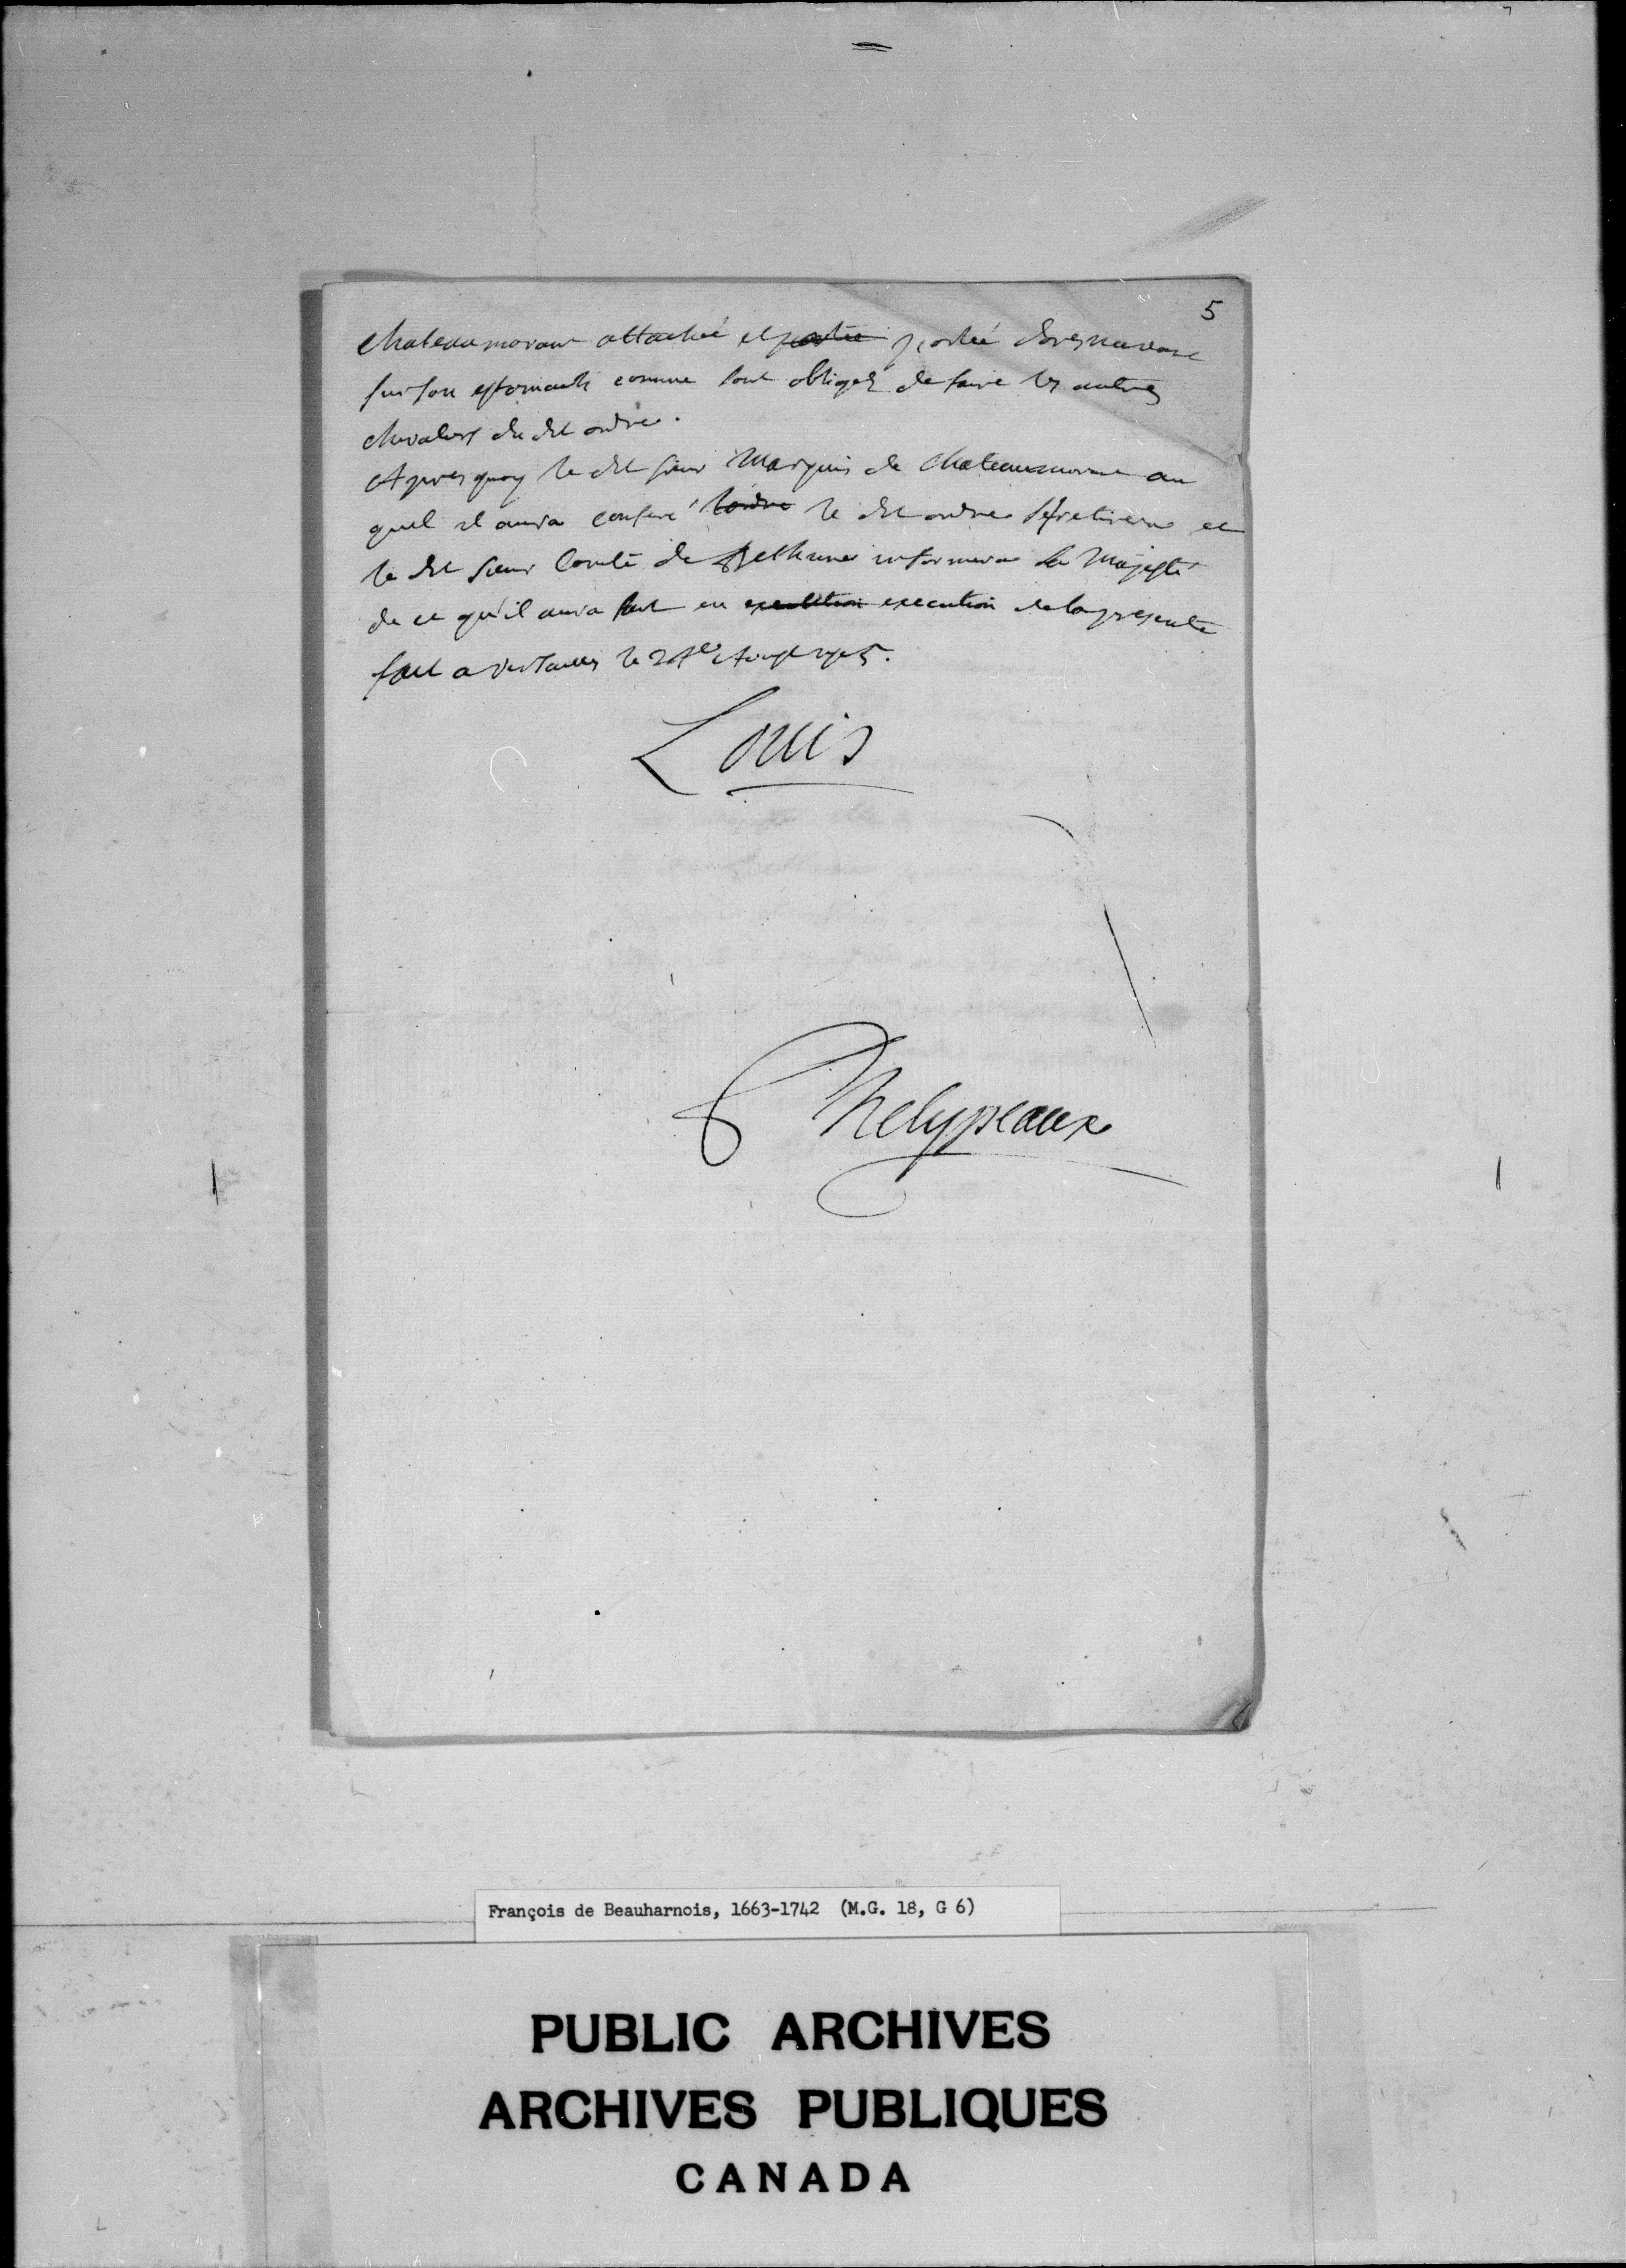 5
chateaumorant attachée et portée portée doresnavant
sur son estomach comme sont obligez de faire les autres
chevaliers du dit ordre.
Apres quoy le dit sieur Marquis de chateaumorant au
quel il aura conferé l'ordre le dit ordre se retirera et
le dit sieur Comte de Bethune informera Sa Majesté
de ce qu'il aura fait en execution de la presente
fait a versailles le Aoust 1705.
Louis
Phelypeaux
François de Beauharnois, 1663-1742 (M.G. 18, G 6)
PUBLIC ARCHIVES
ARCHIVES PUBLIQUES
CANADA